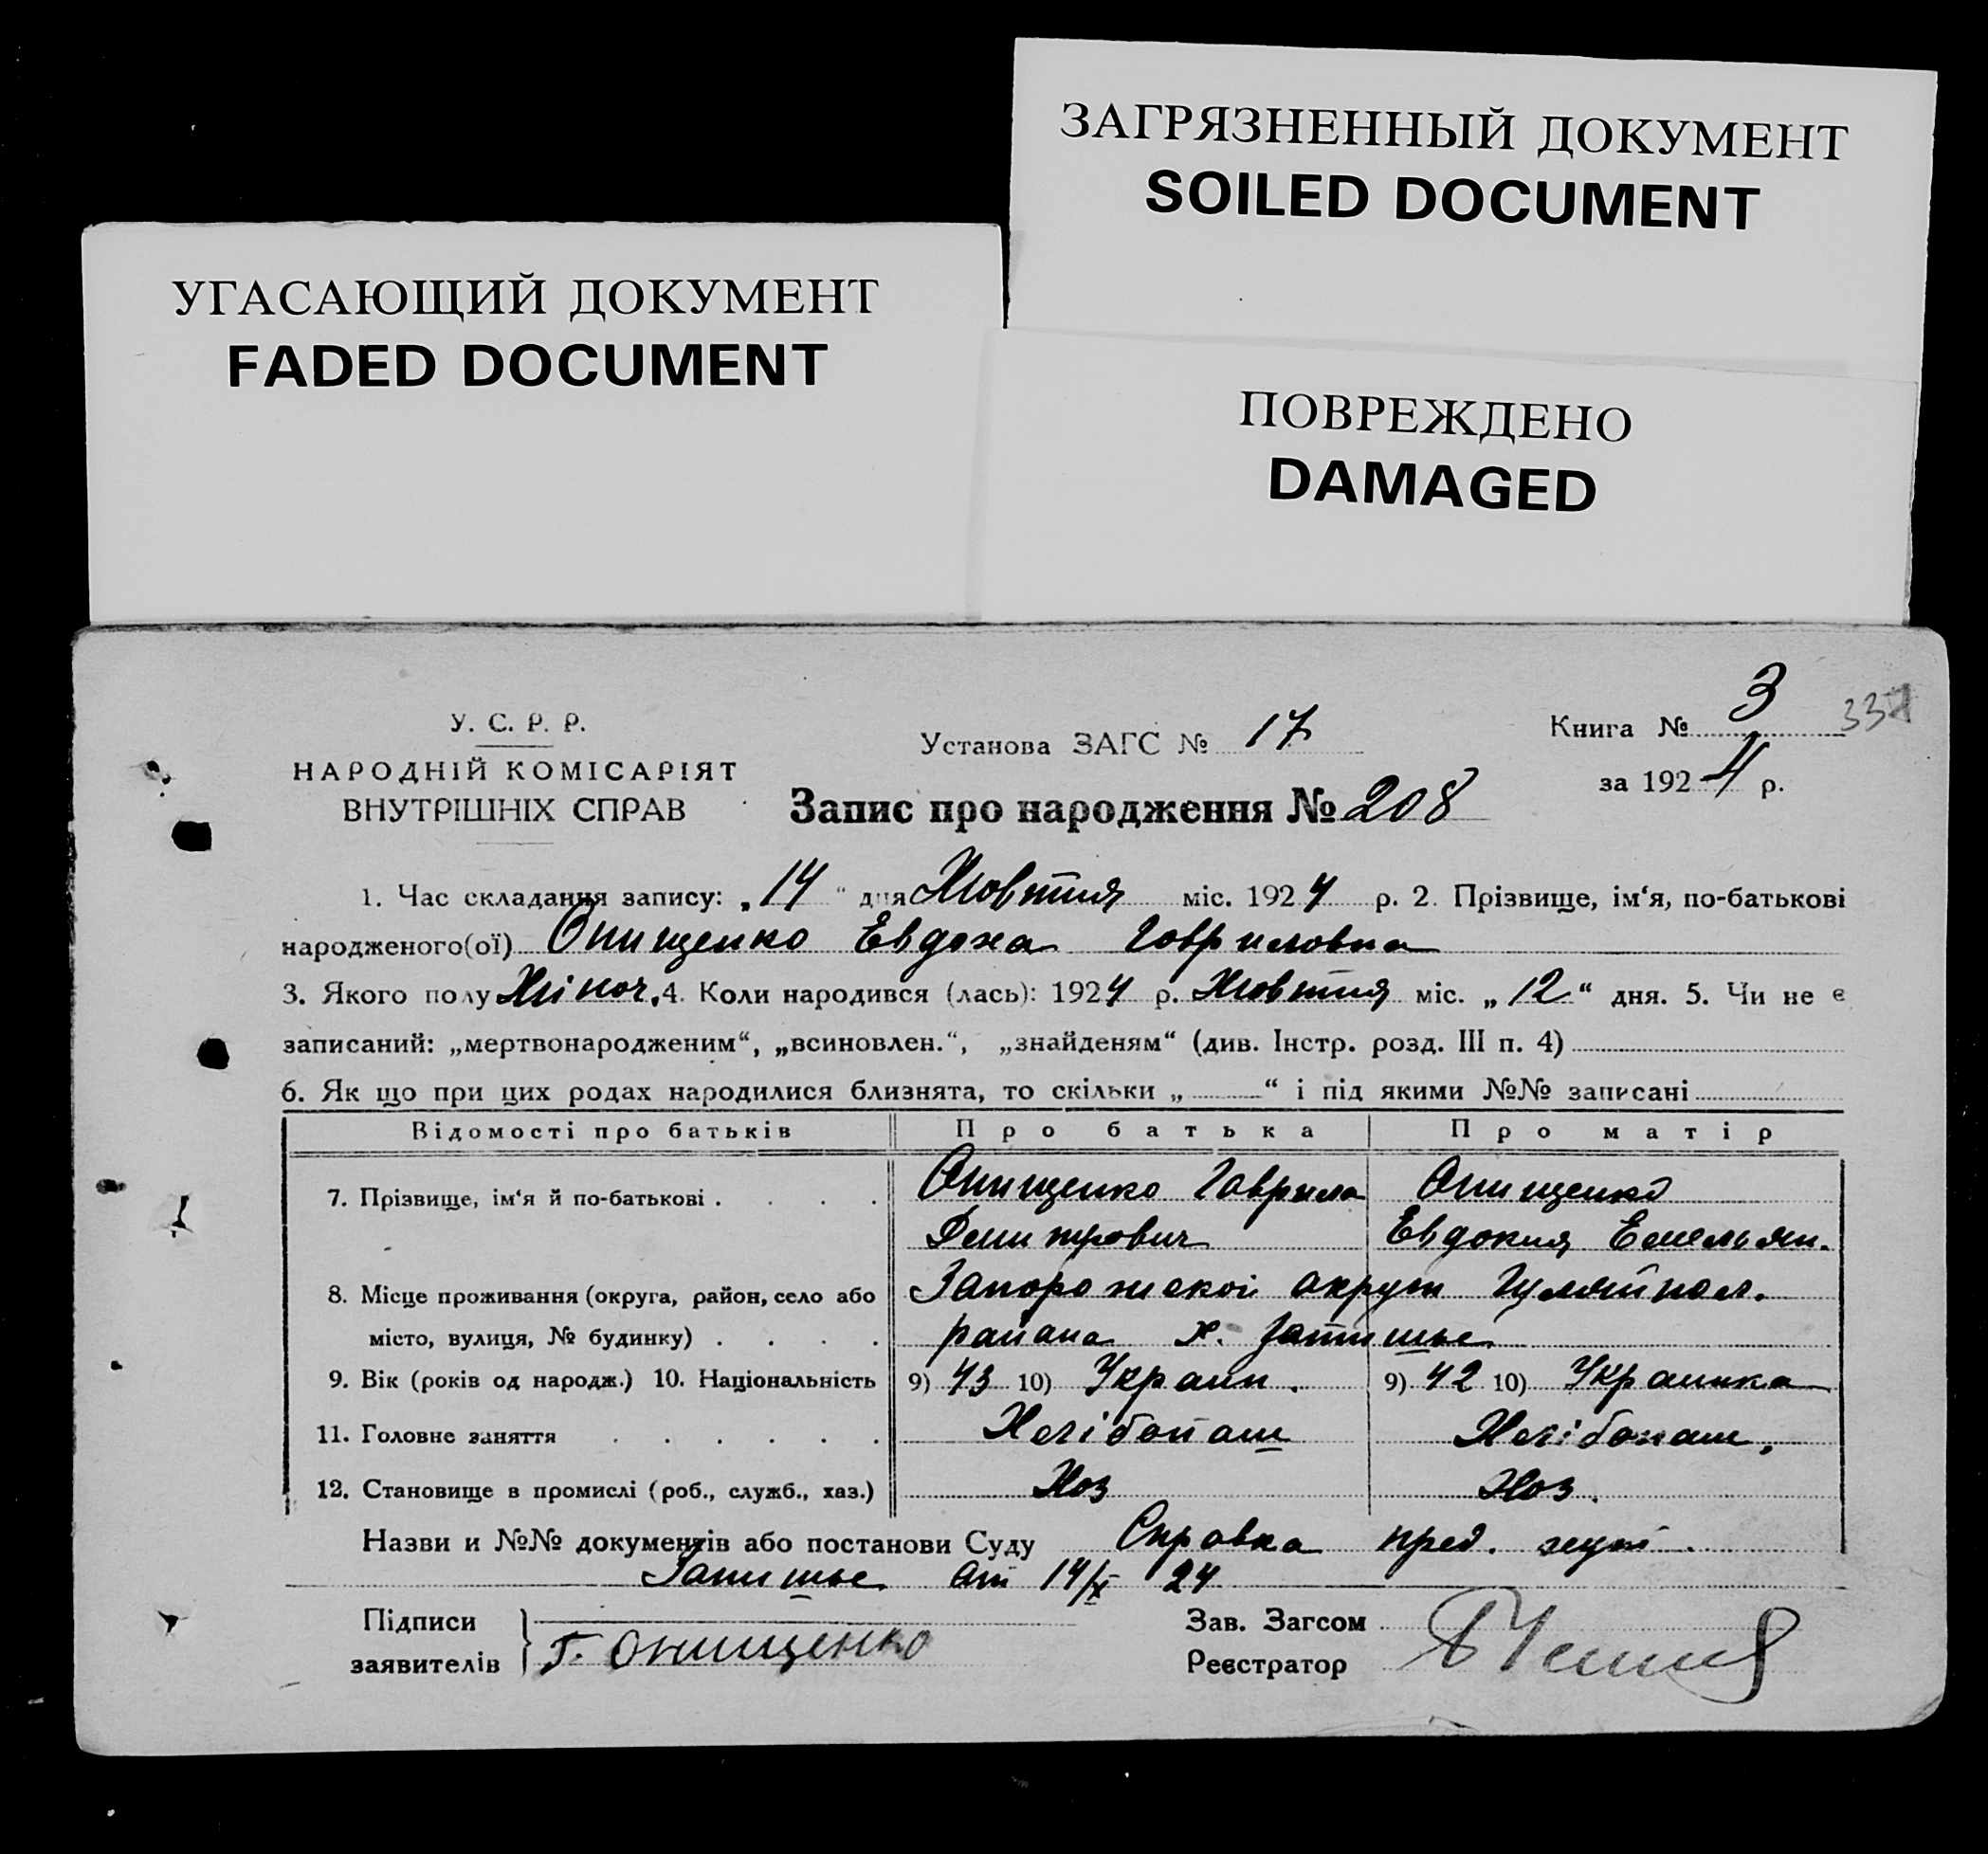 ЗАГРЯЗНЕННЫЙ ДОКУМЕНТ
SOILED DOCUMENT
УГАСАЮЩИЙ ДОКУМЕНТ
FADED DOCUMENT
ПОВРЕЖДЕНО
DAMAGED
У. С. Р. Р.
НАРОДНІЙ КОМІСАРІЯТ
ВНУТРІШНІХ СПРАВ
Установа ЗАГС № 17
Книга № 3
за 1924 р.
Запис про народження № 208
1. Час складання запису: „14“ дня Жовтня міс. 1924 р. 2. Прізвище, ім‘я, по-батькові
народженого(ої) Онищенко Евдоха Гавриловна
3. Якого полу Жіноч. 4. Коли народився (лась): 1924 р. Жовтня міс. „12“ дня. 5. Чи не є
записаний: „мертвонародженим“, „всиновлен.“, „знайденям“ (див. Інстр. розд. III п. 4)
6. Як що при цих родах народилися близнята, то скільки „ “ і під якими №№ записані
Відомості про батьків Про батька Про матір
7. Прізвище, ім‘я й по-батькові Онищенко Гаврила Онищенко
Демитрович Евдокия Емельян.
8. Місце проживання (округа, район, село або Запорожскоі округи Гуляйпол.
місто, вулиця, № будинку) района х. Затишье
9. Вік (років од народж.) 10. Національність 9) 43 10) Украин. 9) 42 10) Украинка
11. Головне заняття Хлібопаш Хлібопаш.
12. Становище в промислі (роб., служб., хаз.) Хоз Хоз.
Назви и №№ документів або постанови Суду Справка пред.
Затишье от 14/X 24
Підписи
заявителів Г. Онищенко
Зав. Загсом
Реєстратор